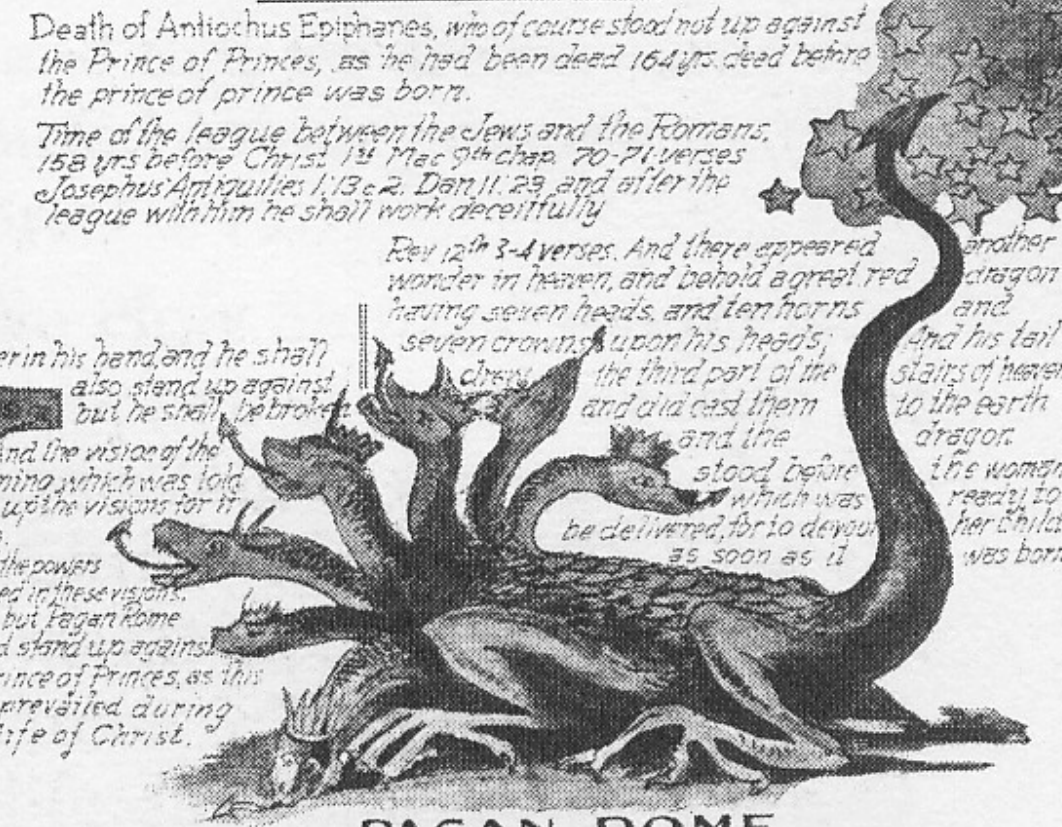 Death of Antiochus Epiphanes, who of course stood not up against
the Prince of Princes, as he had been dead 164 yrs. dead before
the prince of prince was born.
Time of the league between the Jews and the Romans,
158 yrs before Christ 1st Mac 9th chap. 70-71 verses
Josephus Antiquities 1.13 c 2. Dan 11:23, and after the
league with him he shall work deceitfully
Rev 12th 3-4 verses. And there appeared another
wonder in heaven, and behold a great, red dragon
having seven heads, and ten horns and
seven crowns upon his heads; And his tail
drew the third part of the stairs of heaven
and did cast them to the earth
and the dragon
stood before the woman
which was ready to
be delivered, for to devour her child
as soon as it was born
er in his hand, and he shall
also stand up against
but he shall be broken
And the vision of the
which was told
up the visions for it
the powers
ed in these visions.
but Pagan Rome
d stand up against
rince of Princes, as this
prevailed during
life of Christ.
PAGAN ROME